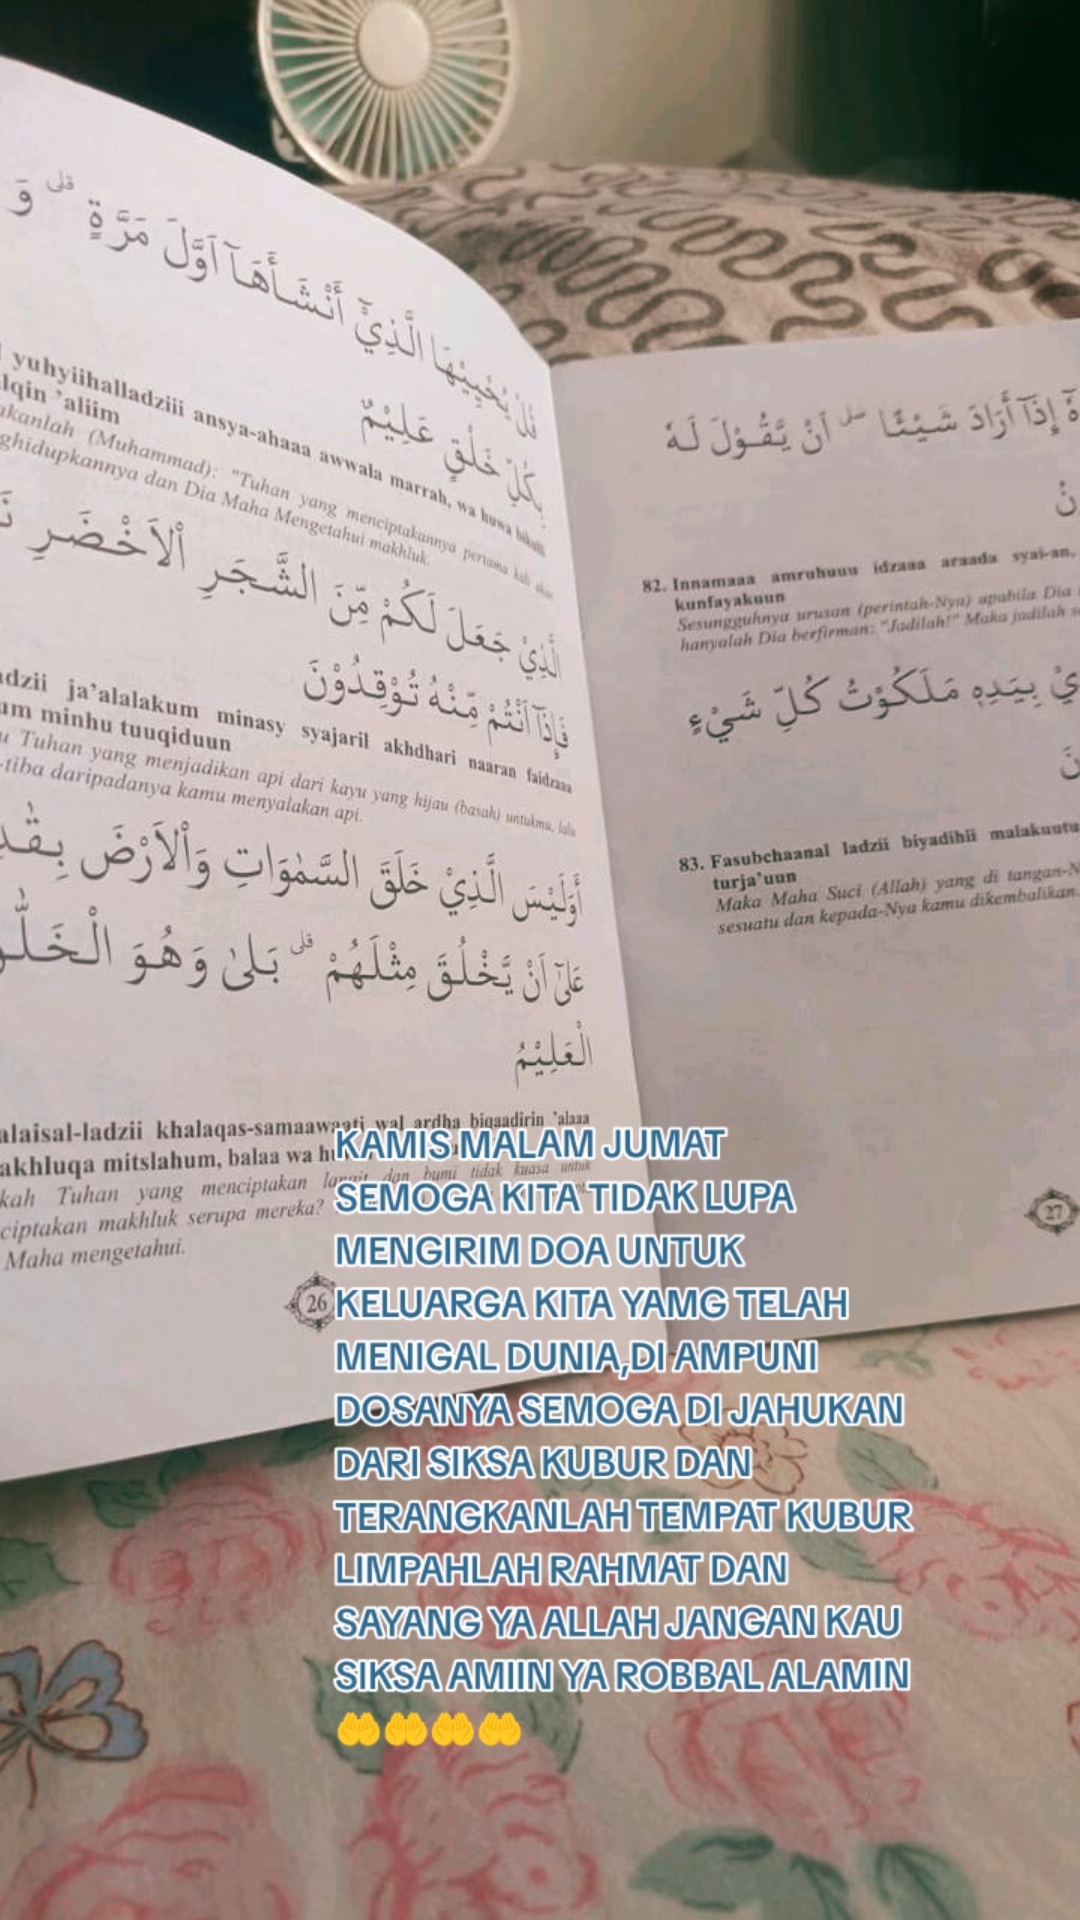 قُلْ يُحْيِيْهَا الَّذِيْٓ أَنْشَأَهَآ اَوَّلَ مَرَّةٍ ۗ وَ
بِكُلِّ خَلْقٍ عَلِيْمٌ
yuhyiihalladziii ansya-ahaaa awwala marrah, wa huwa bikulli
lqin 'aliim
akanlah (Muhammad): "Tuhan yang menciptakannya pertama kali akan
ghidupkannya dan Dia Maha Mengetahui makhluk.
الَّذِيْ جَعَلَ لَكُمْ مِّنَ الشَّجَرِ الْاَخْضَرِ
فَإِذَآ اَنْتُمْ مِّنْهُ تُوْقِدُوْنَ
adzii ja'alalakum minasy syajaril akhdhari naaran faidzaaa
um minhu tuuqiduun
u Tuhan yang menjadikan api dari kayu yang hijau (basah) untukmu, lalu
-tiba daripadanya kamu menyalakan api.
أَوَلَيْسَ الَّذِيْ خَلَقَ السَّمٰوَاتِ وَالْاَرْضَ بِقٰدِ
عَلٰٓى اَنْ يَّخْلُقَ مِثْلَهُمْ ۗ بَلٰى وَهُوَ الْخَلّٰ
الْعَلِيْمُ
alaisal-ladzii khalaqas-samaawaati wal ardha biqaadirin 'alaaa
akhluqa mitslahum, balaa wa hu
kah Tuhan yang menciptakan langit dan bumi tidak kuasa untuk
ciptakan makhluk serupa mereka?
Maha mengetahui.
26
هٗٓ إِذَآ أَرَادَ شَيْئًا ۖ اَنْ يَّقُوْلَ لَهٗ
نُ
82. Innamaaa amruhuuu idzaaa araada syai-an,
kunfayakuun
Sesungguhnya urusan (perintah-Nya) apabila Dia
hanyalah Dia berfirman: "Jadilah!" Maka jadilah
يْ بِيَدِهٖ مَلَكُوْتُ كُلِّ شَيْءٍ
نَ
83. Fasubchaanal ladzii biyadihii malakuutu
turja'uun
Maka Maha Suci (Allah) yang di tangan-N
sesuatu dan kepada-Nya kamu dikembalikan.
27
KAMIS MALAM JUMAT
SEMOGA KITA TIDAK LUPA
MENGIRIM DOA UNTUK
KELUARGA KITA YAMG TELAH
MENIGAL DUNIA,DI AMPUNI
DOSANYA SEMOGA DI JAHUKAN
DARI SIKSA KUBUR DAN
TERANGKANLAH TEMPAT KUBUR
LIMPAHLAH RAHMAT DAN
SAYANG YA ALLAH JANGAN KAU
SIKSA AMIIN YA ROBBAL ALAMIN
🤲🤲🤲🤲